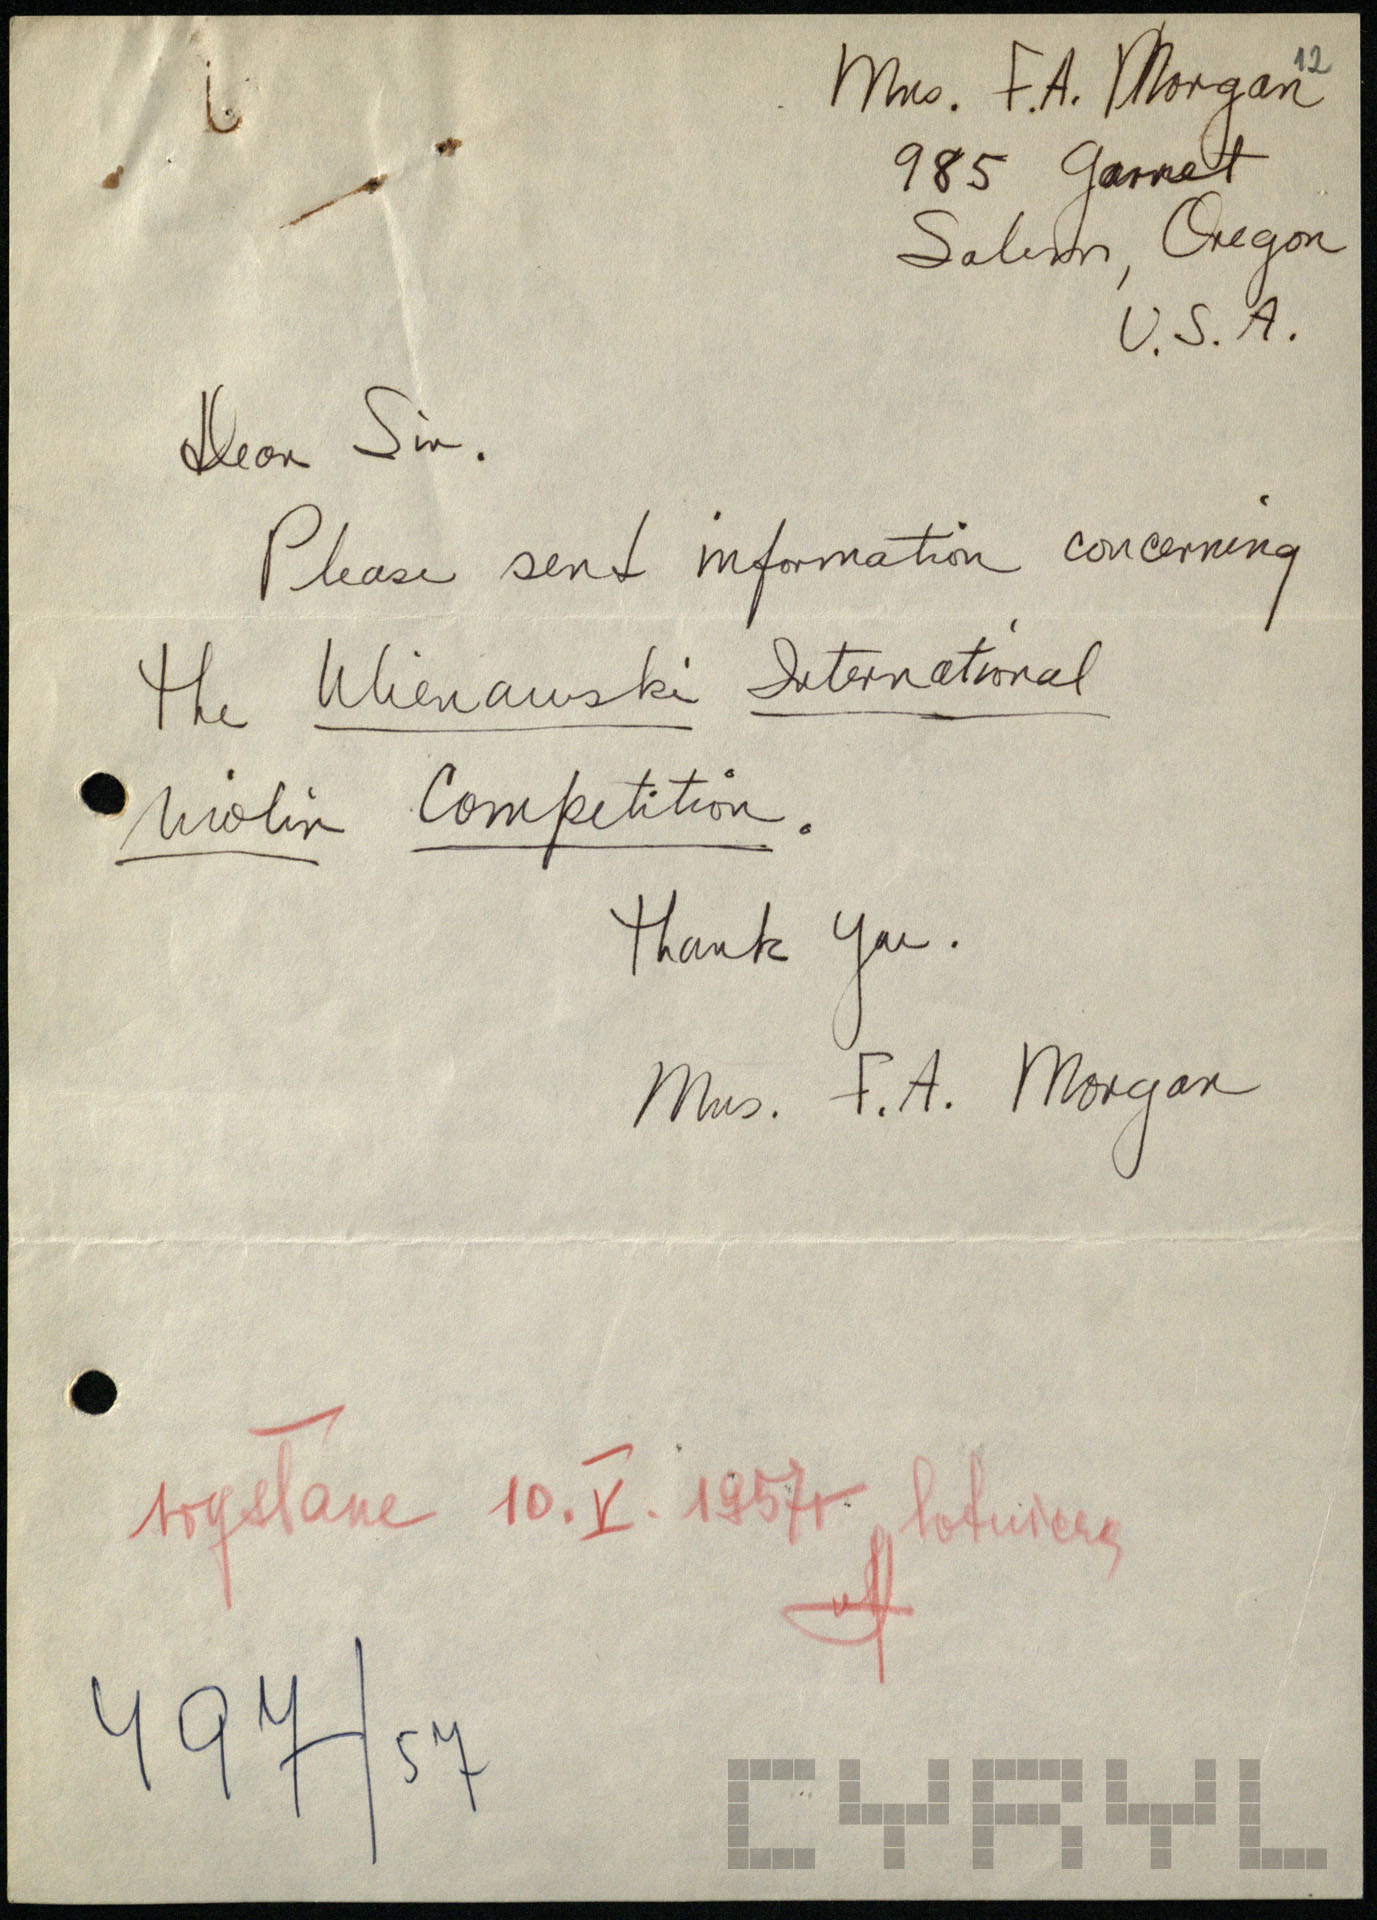 12
Mrs. F.A. Morgan
985 Garnet
Salem, Oregon
U.S.A.
Dear Sir.
Please send information concerning
the Wienawski International
Violin Competition.
Thank you.
Mrs. F.A. Morgan
wysłane 10.V.1957r lotniczą
497/57
CYRYL